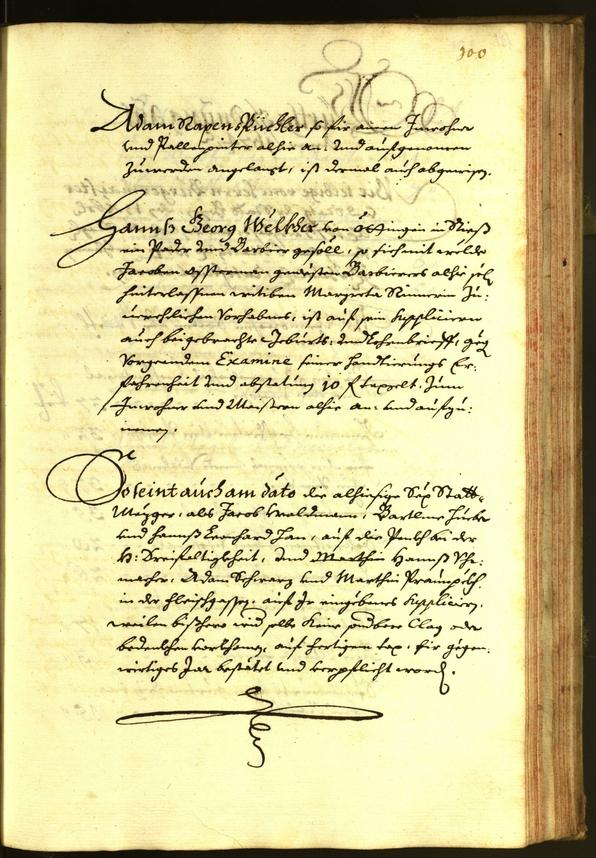 100
Adam Rapensküchler so für einen Inwohner
und Pallenpinter alhie an- und aufgenomen
zuwerden angelangt, ist dermal auch abgewisen.
Hannß Georg Wëlkher von in Rieß
ein Pader und Barbier gesöll, so sich mit weilde
Jacoben gewesten Barbierers alhie sel
hinterlassnen witiben Margreta Rinnerin zu:
uerehelichen Vorhabens, ist auf sein Suppliciern
auch beigebrachte Geburts: und Lehenbrieff, geg
Vorgeendem Examine seiner handtierungs Er:
fahrenheit und abstatung 10 f taxgelt, Zum
Inwohner und Maistern alhie an- und aufzu:
nemen.
So seint auch am dato die alhiesige Sex Statt-
Mezger, als Jacob Waldmann, Bartlme
und Hannß Leonhard Jan, auf der Penkh bei der
H: Dreifaltigkheit, und Marthin Hannß Sche:
macher, Adam Schwarz und Marthin
in der fleischgassen, auf Ir eingebenes Suppliciern,
weilen bißhero wid selbe Keine sondbare Clag oder
bedenkhen vorkhomen, auf hertigen tax, für gegen:
wirtiges Jar bestätet und verpflicht word.